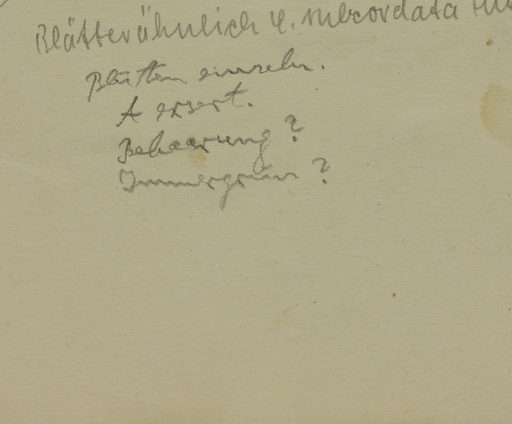 Blätter ähnlich u. subcordata
Blüten einzeln.
A exsert.
Behaarung?
Immergrün?